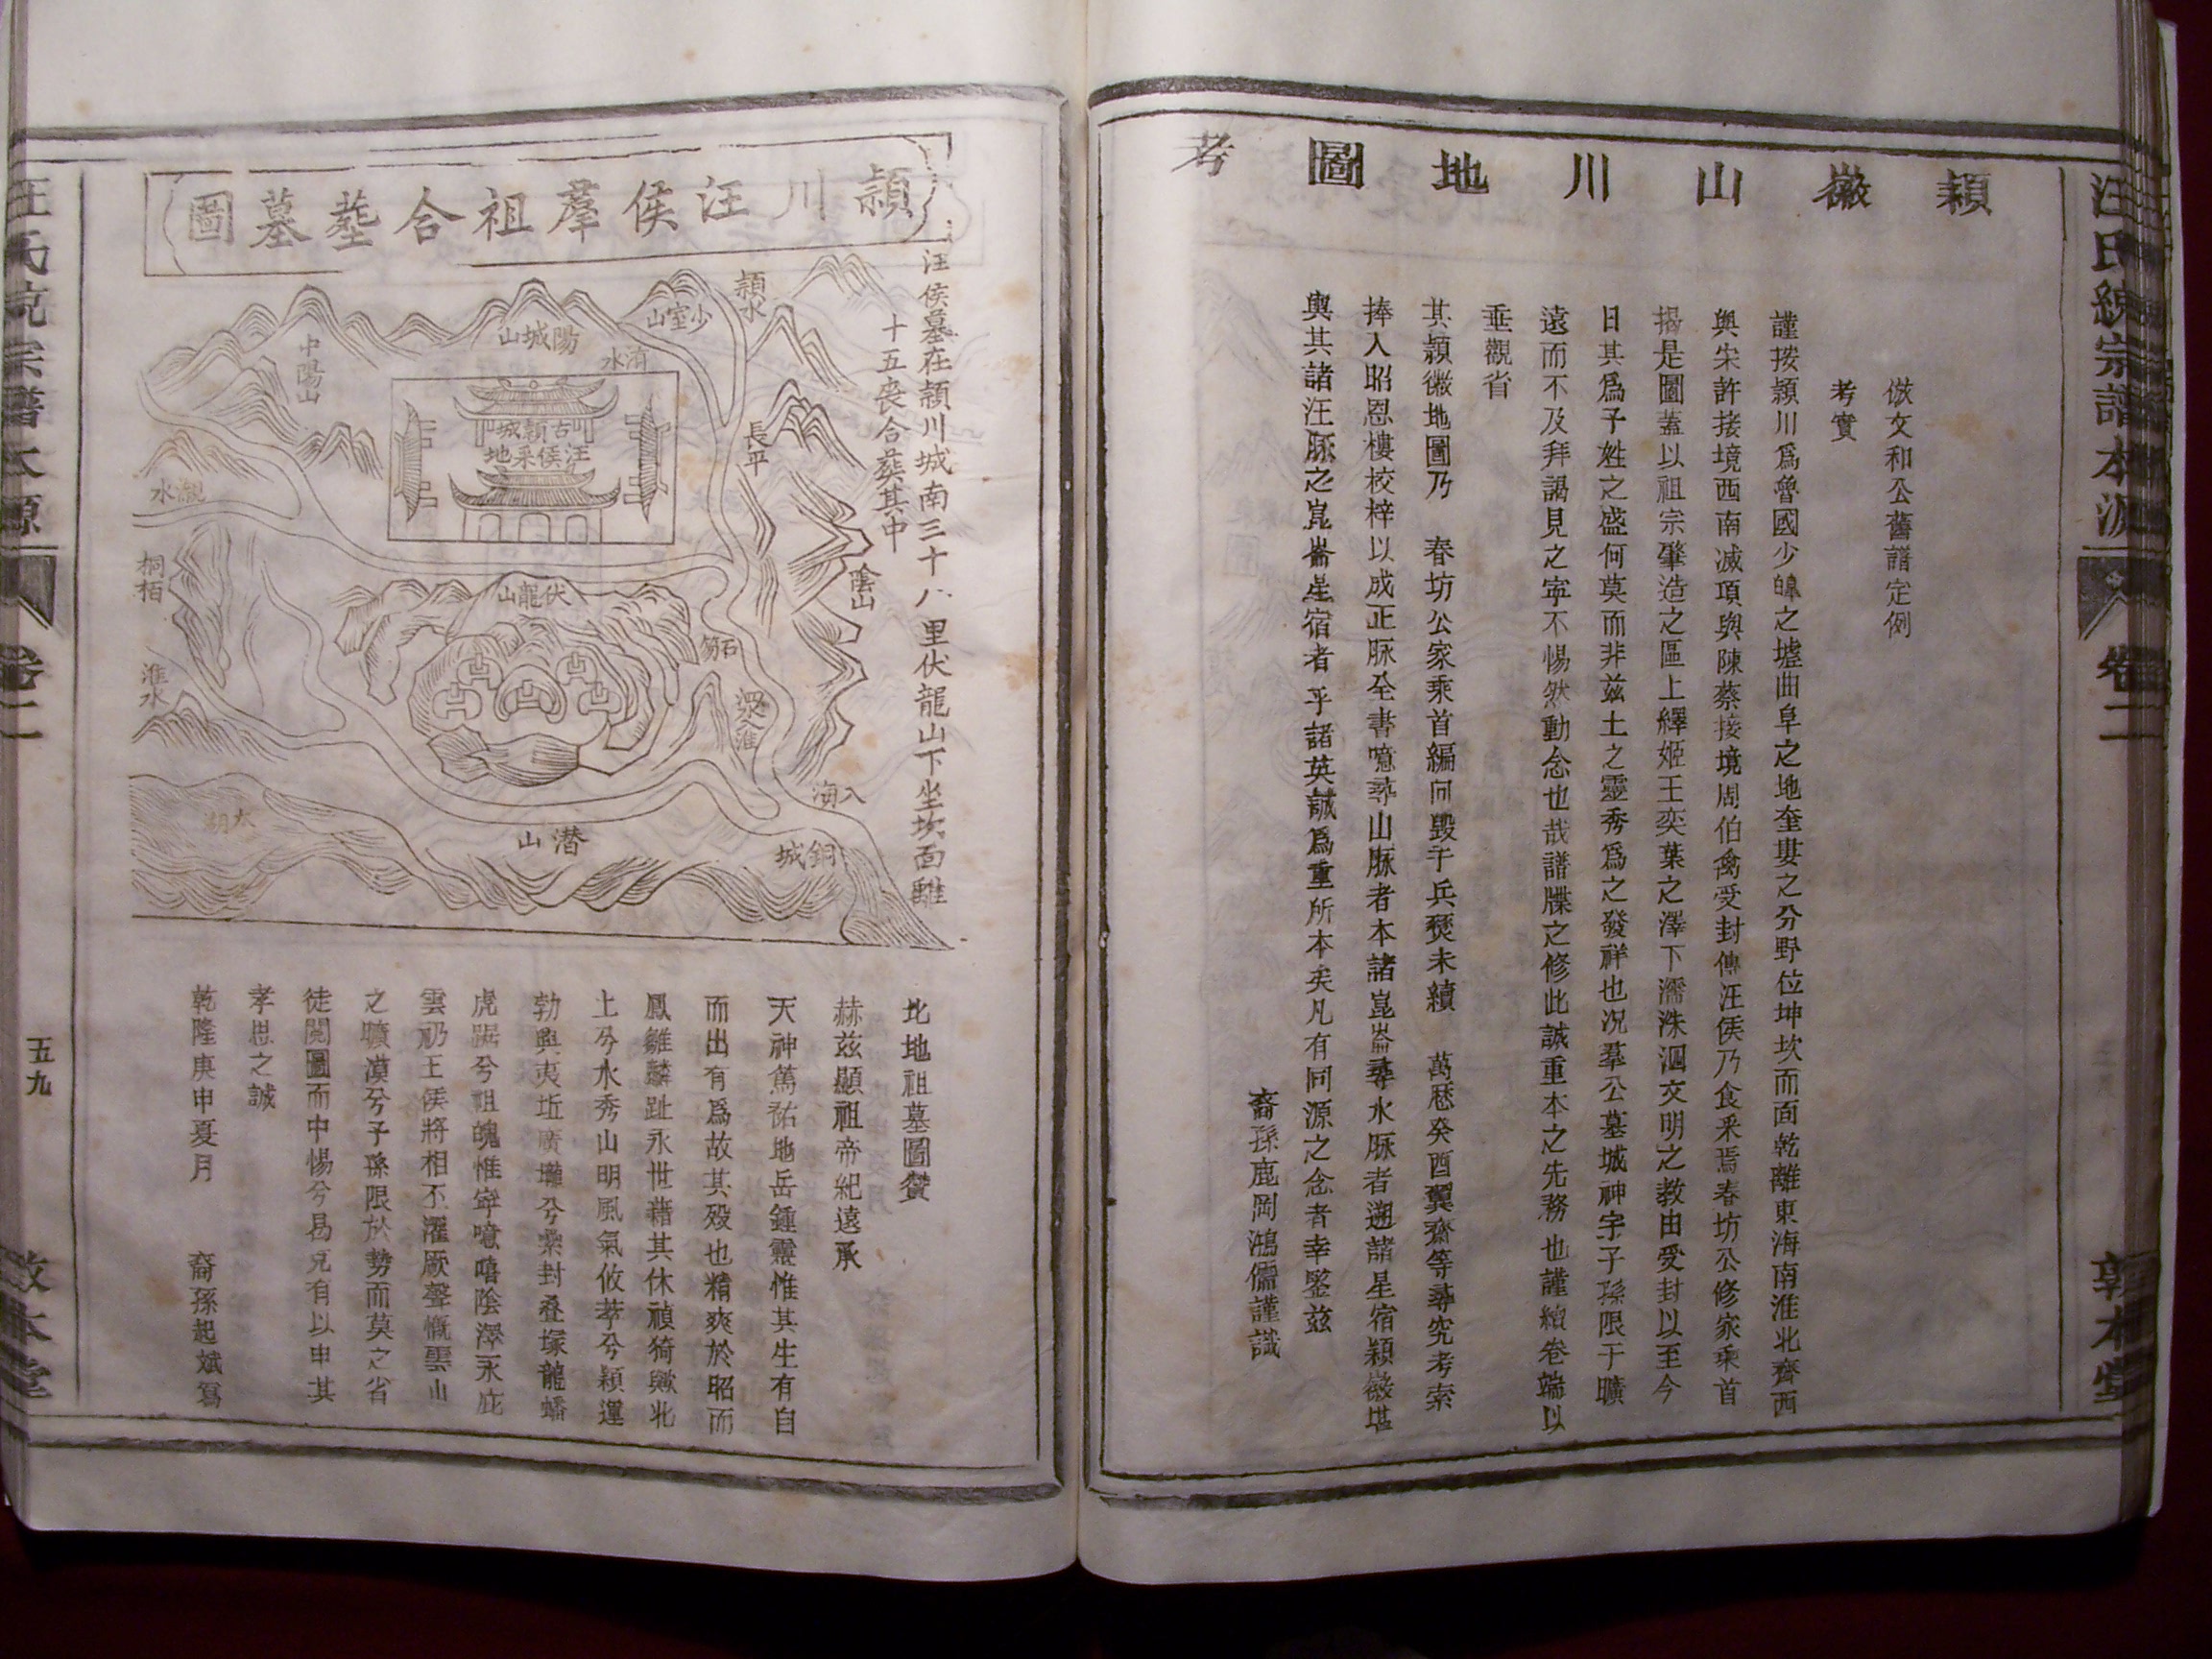 穎徽山川地圖考
倣文和公舊譜定例
考實
謹按潁川爲魯國少皥之墟曲阜之地奎婁之分野位坤坎而面乾離東海南淮北齊西
與宋許接境西南滅項與陳蔡接境周伯禽受封傳汪侯乃食釆焉春坊公修家乘首
揭是圖蓋以祖宗肇造之區上繹姬王奕葉之澤下濡洙泗文明之教由受封以至今
日其爲子姓之盛何莫而非兹土之靈秀爲之發祥也况羣公墓城神宇子孫限于曠
遠而不及拜謁見之寧不惕然動念也哉譜牒之修此誠重本之先務也謹繪卷端以
垂觀省
其潁徽地圖乃 春坊公家乘首編向毀于兵燹未續 萬厯癸酉翼齋等尋究考索
捧入昭恩樓校梓以成正脉全書噫尋山脉者本諸崑崙尋水脉者遡諸星宿潁徽堪
輿其諸汪脉之崑崙星宿者乎諸英誠爲重所本矣凡有同源之念者幸鍳兹
裔孫鹿岡鴻儒謹識
汪氏統宗譜本源
卷二
敦本堂
潁川汪侯羣祖合塟墓圖
汪侯墓在潁川城南三十八里伏龍山下坐坎面離
十五喪合葬其中
潁水
少室山
陽城山
中陽山
濟水
古潁城
汪侯釆地
長平
灈水
陰山
桐栢
伏龍山
淮水
入海
大湖
潜山
銅城
此地祖墓圖贊
赫兹顯祖帝紀遠承
天神篤祐地岳鍾靈惟其生有自
而出有爲故其殁也精爽於昭而
鳳雛麟趾永世藉其休禎猗歟兆
上兮水秀山明風氣攸萃兮潁運
勃興夷坵廣壠兮纍封叠塚龍蟠
虎踞兮祖魄惟寧噫嘻陰澤永庇
雲礽王侯將相丕濯厥聲慨雲山
之曠漠兮子孫限於勢而莫之省
徒閱圖而中惕兮曷克有以申其
孝思之誠
乾隆庚申夏月 裔孫起斌寫
汪氏統宗譜本源
卷二
五九
敦本堂